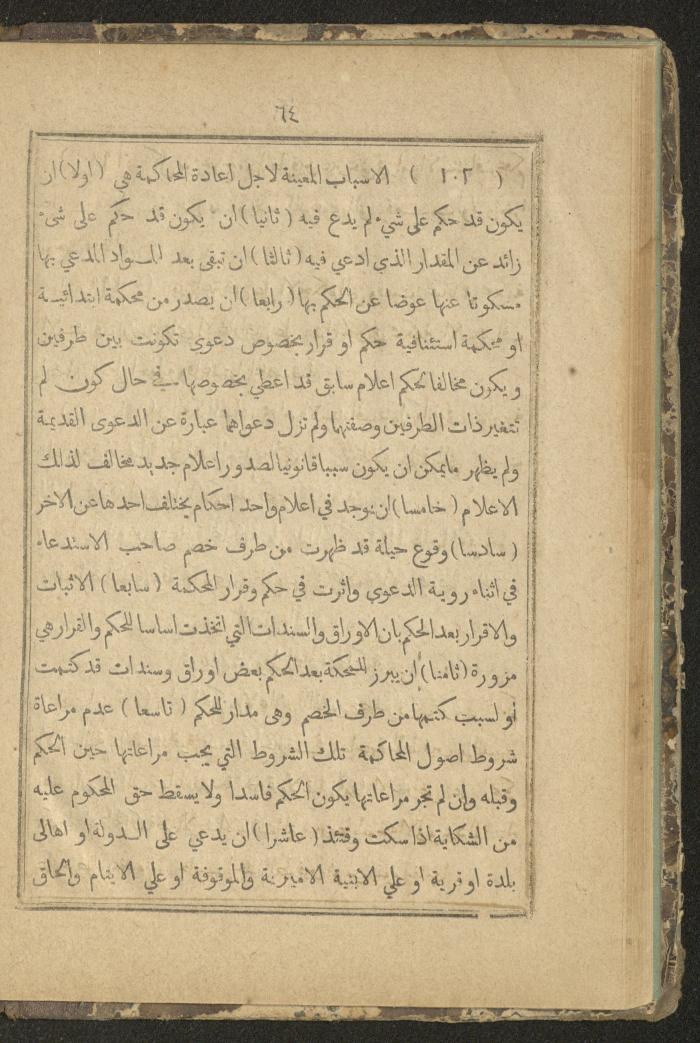 ٦٤
( ١٠٢ ) الاسباب المعينة لاجل اعادة المحاكمة هي (اولا) ان
يكون قد حكم على شيء لم يدع فيه (ثانيا) ان يكون قد حكم على شيء
زائد عن المقدار الذي ادعي فيه (ثالثا) ان تبقى بعد المواد المدعي بها
مسكوتا عنها عوضا عن الحكم بها (رابعا) ان يصدر من محكمة ابتدائية
او محكمة استئنافية حكم او قرار بخصوص دعوى تكونت بين طرفين
ويكون مخالفا لحكم اعلام سابق قد اعطي بخصوصها في حال كون لم
تتغير ذات الطرفين وصفتهما ولم تزل دعواهما عبارة عن الدعوى القديمة
ولم يظهر مايمكن ان يكون سببا قانونيا لصدور اعلام جديد مخالف لذلك
الاعلام (خامسا) ان يوجد في اعلام واحد احكام يختلف احدها عن الاخر
(سادسا) وقوع حيلة قد ظهرت من طرف خصم صاحب الاستدعاء
في اثناء روية الدعوى واثرت في حكم وقرار المحكمة (سابعا) الاثبات
والاقرار بعد الحكم بان الاوراق والسندات التي اتخذت اساسا للحكم والقرار هي
مزورة (ثامنا) أن يبرز للمحكمة بعد الحكم بعض اوراق وسندات قد كتمت
أو لسبب كتمها من طرف الخصم وهى مدار للحكم (تاسعا) عدم مراعاة
شروط اصول المحاكمة تلك الشروط التي يجب مراعاتها حين الحكم
وقبله وان لم تجر مراعاتها يكون الحكم فاسدا ولا يسقط حق المحكوم عليه
من الشكاية اذا سكت وقتئذ (عاشرا) ان يدعي على الدولة او اهالى
بلدة او قرية او علي الابنية الاميرية والموقوفة او علي الايتام والحاق